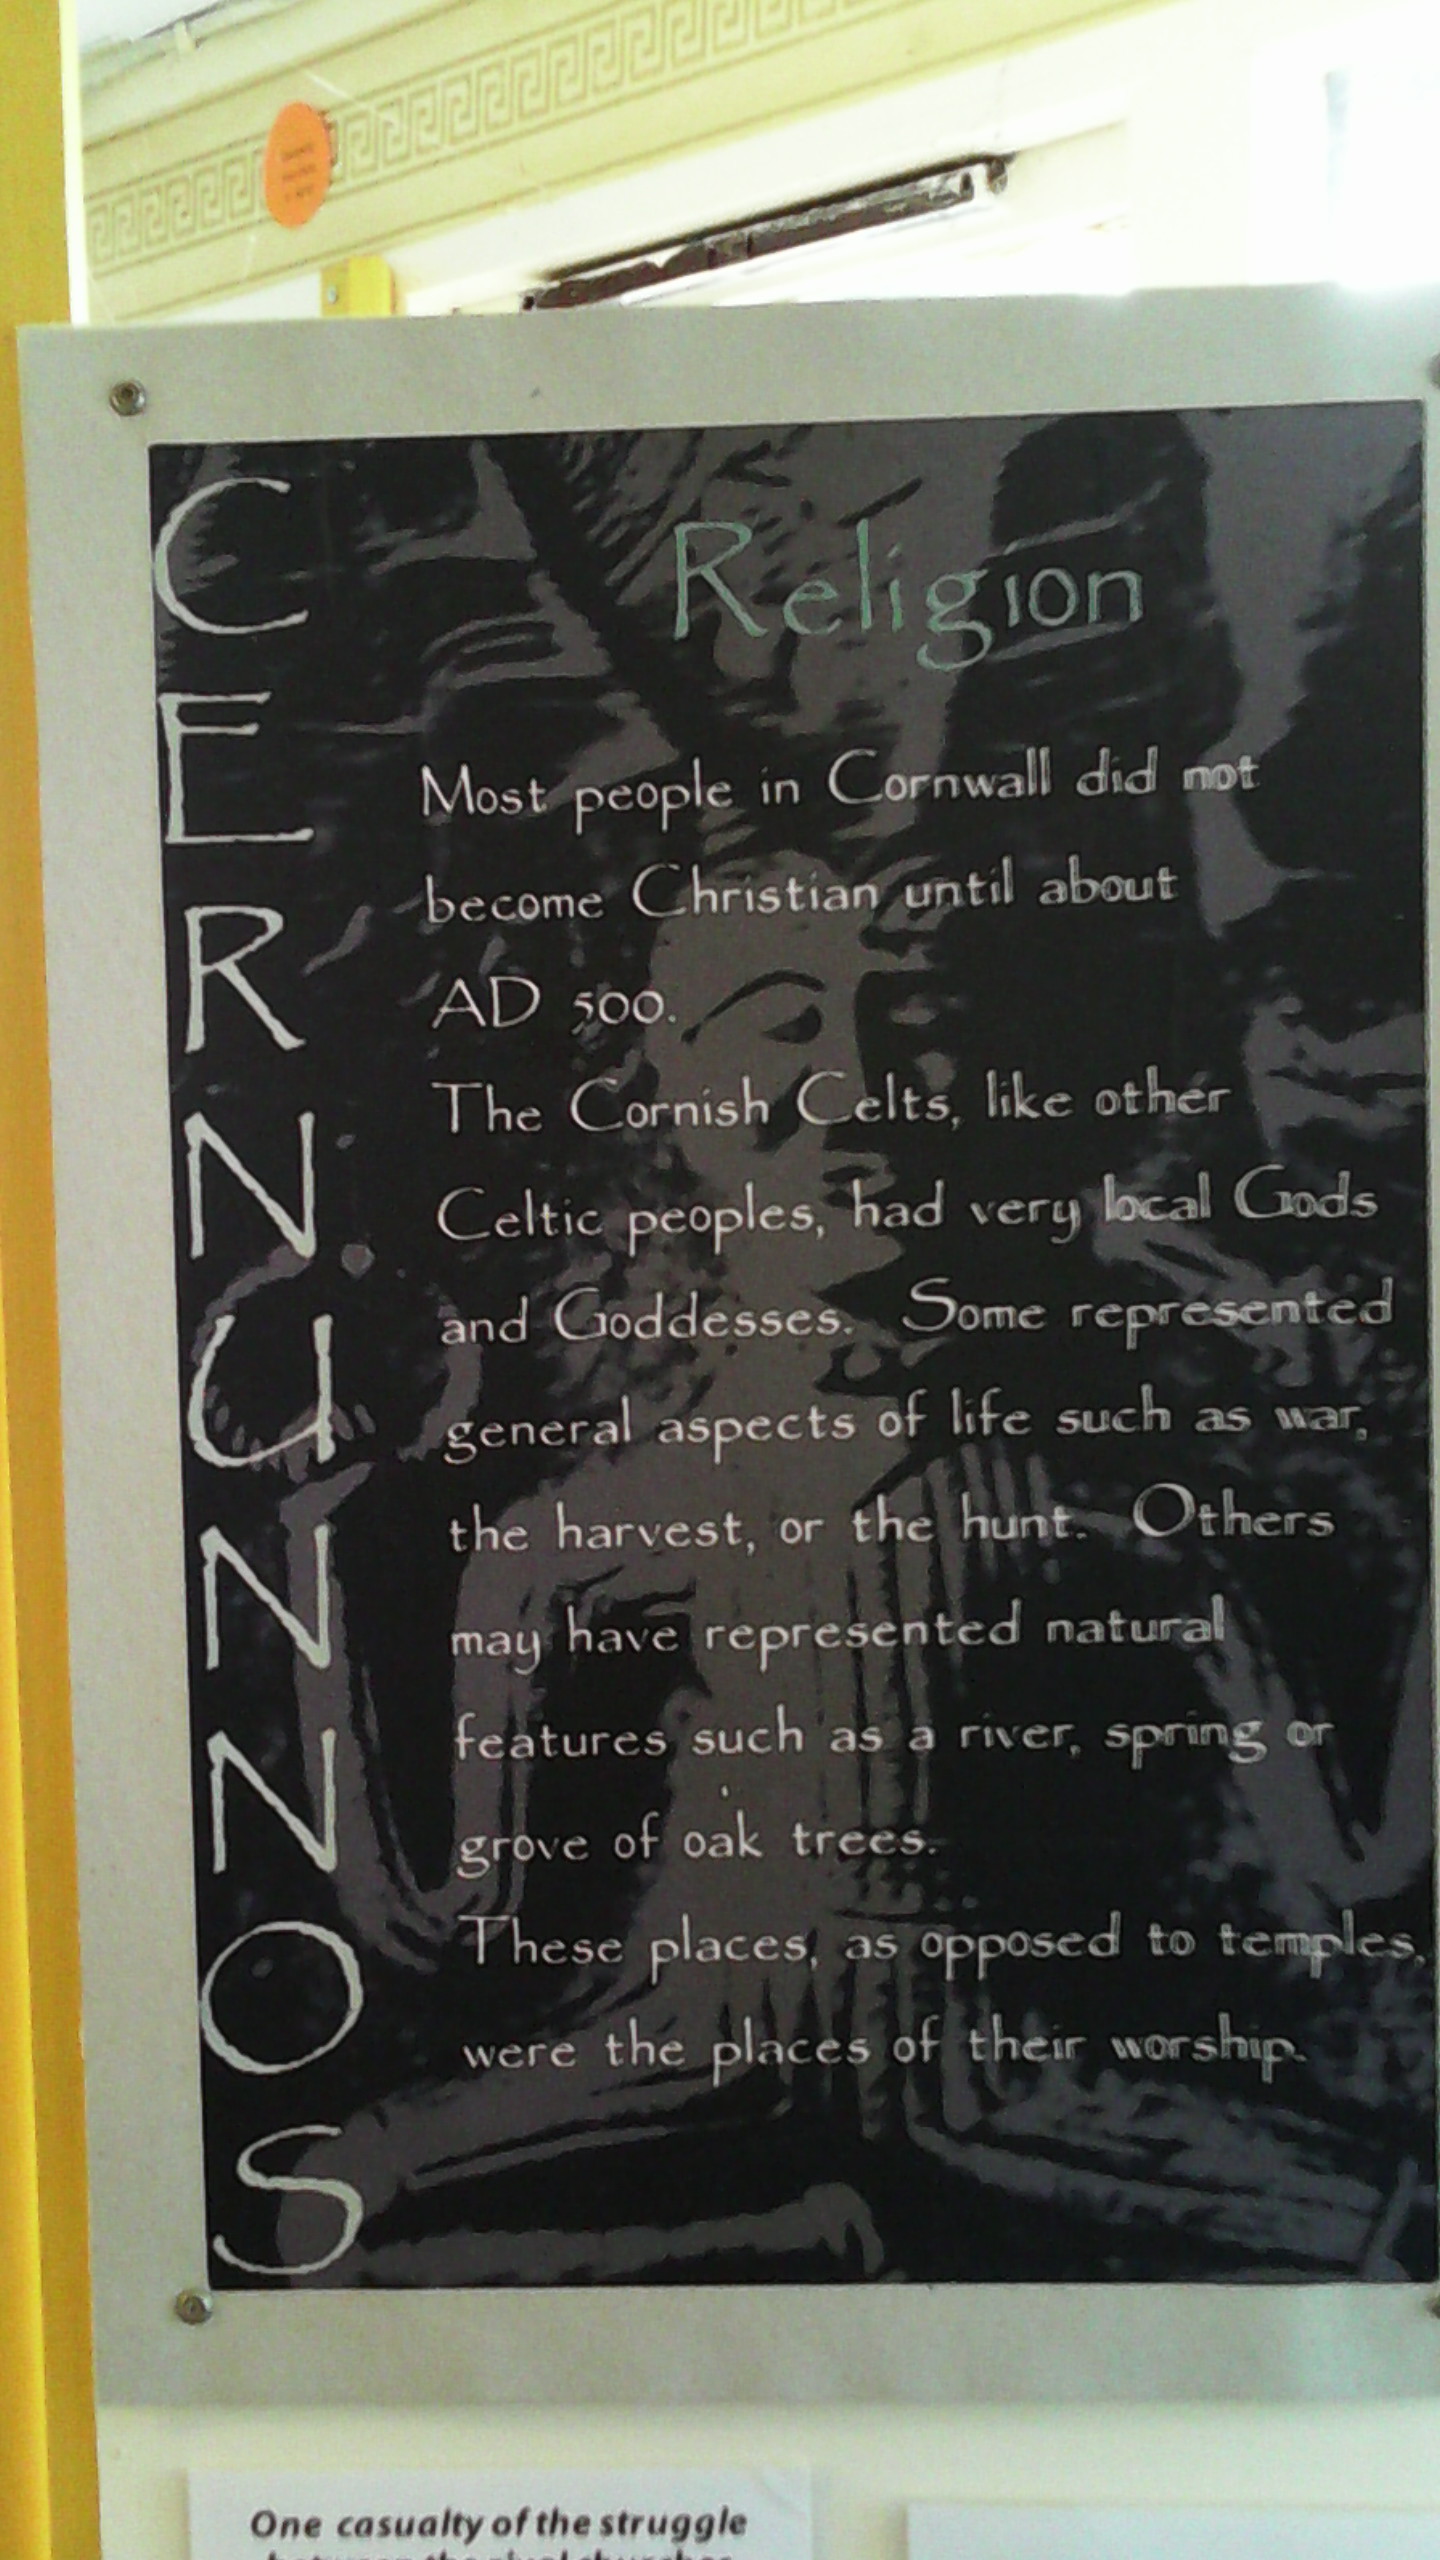 CERNUNNOS
Religion
Most people in Cornwall did not
become Christian until about
AD 500.
The Cornish Celts, like other
Celtic peoples, had very local Gods
and Goddesses. Some represented
general aspects of life such as war,
the harvest, or the hunt. Others
may have represented natural
features such as a river, spring or
grove of oak trees.
These places, as opposed to temples,
were the places of their worship.
One casualty of the struggle
between the rival churches